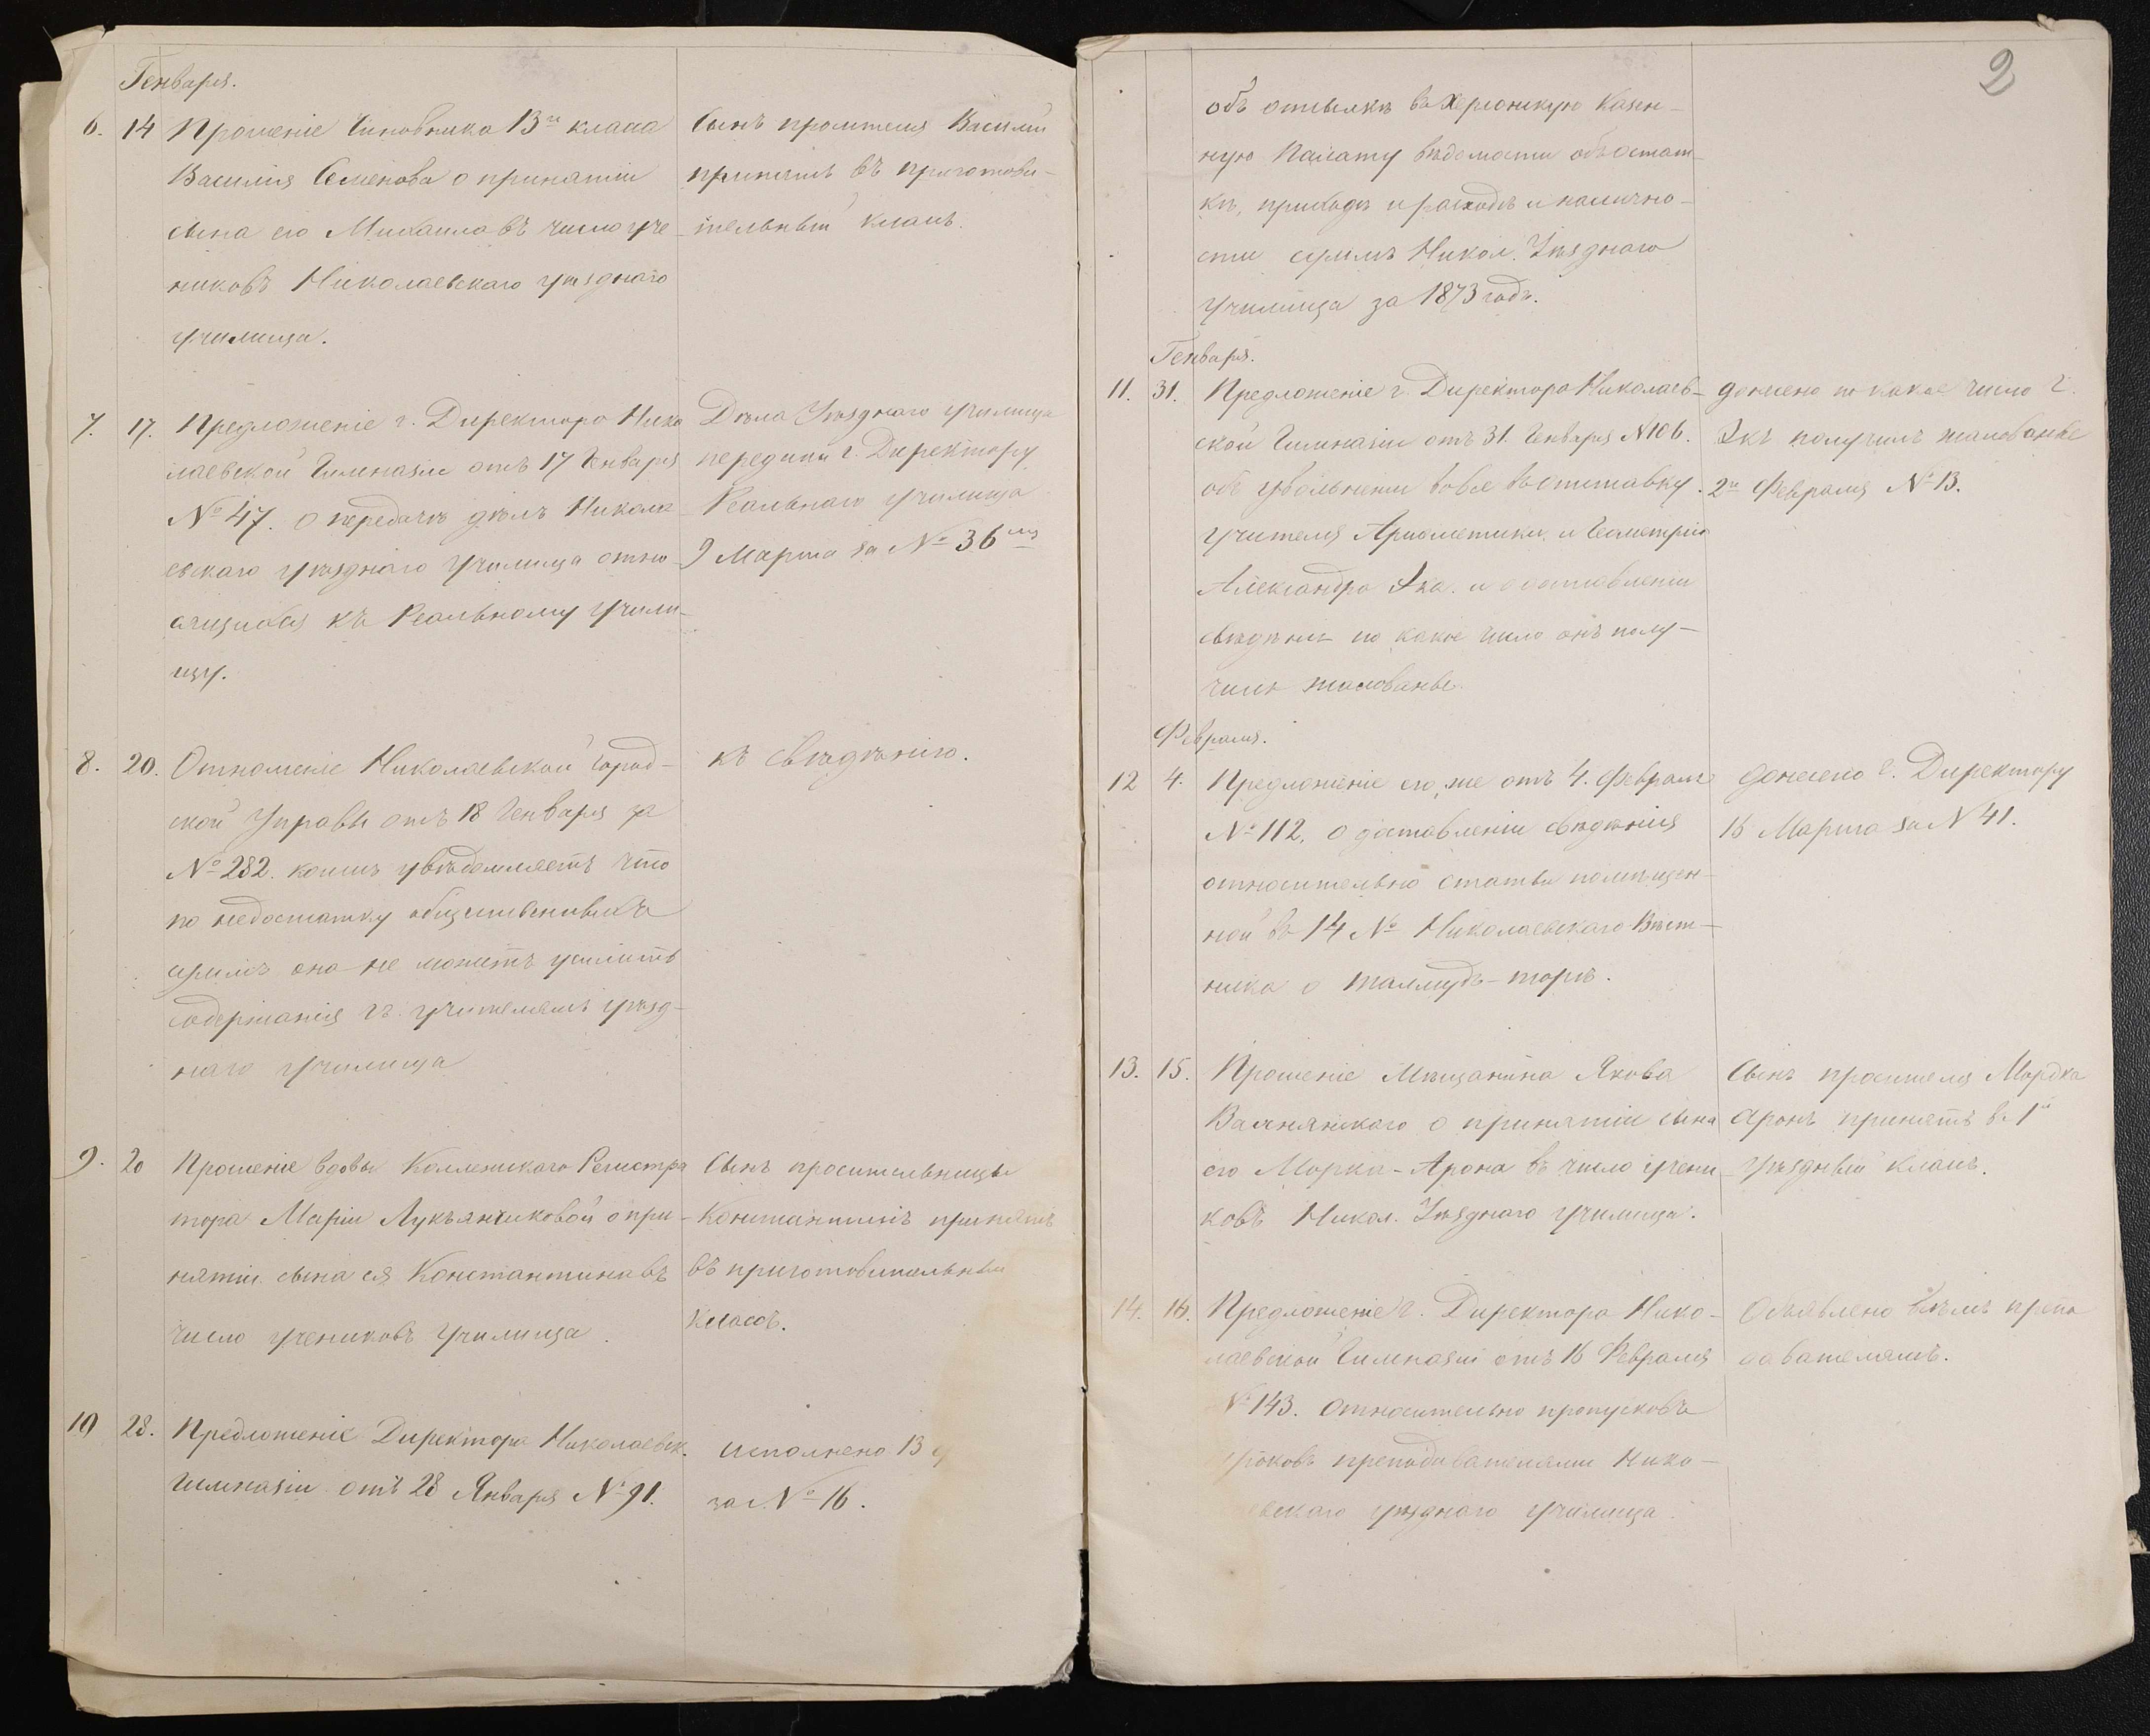 Генваря.
6. 14 Прошеніе Чиновника 13го класса
Василія Семенова о принятіи
сына его Михаила въ число уче-
никовъ Николаевскаго уѣзднаго
училища.
Сынъ просителя Василій
принятъ въ приготови-
тельный классъ.
7. 17. Предложеніе г. Директора Нико
лаевской Гимназіи отъ 17 Генваря
№ 47. о передачѣ дѣлъ Никола
евскаго уѣзднаго училища отно-
сящихся къ Реальному учили-
щу.
Дѣла Уѣзднаго училища
переданы г. Директору
Реальнаго училища
9 Марта за № 36
8. 20. Отношеніе Николаевской город-
ской Управы отъ 18 Генваря за
№ 282. коимъ увѣдомляетъ что
по недостатку общественныхъ
суммъ она не можетъ усилить
содержанія гг. учителямъ уѣзд-
наго училища
къ свѣдѣнію.
9. 20 Прошеніе вдовы Коллежскаго Регистра
тора Маріи Лукъянчиковой о при-
нятіи сына ея Константина въ
число учениковъ училища.
Сынъ просительницы
Константинъ принятъ
въ приготовительный
классъ.
10 28. Предложеніе Директора Николаевск.
Гимназіи отъ 28 Января № 91.
исполнено 13
за № 16.
2
объ отсылкѣ въ Херсонскую Казен-
ную Палату вѣдомости объ остат-
кѣ, приходѣ и расходѣ и налично-
сти суммъ Никол. Уѣзднаго
училища за 1873 годъ.
Генваря.
11. 31. Предложеніе г. Директора Николаев-
ской Гимназіи отъ 31. Генваря № 106.
объ увольненіи вовсе въ отставку
учителя Ариѳметики и Геометріи
Александра Эка. и о доставленіи
свѣдѣнія по какое число онъ полу-
чилъ жалованье.
донесено по какое число г.
Экъ получилъ жалованье
2го Февраля № 13.
Февраля.
12 4. Предложеніе его же отъ 4. Февраля
№ 112, о доставленіи свѣдѣнія
относительно статьи помѣщен-
ной въ 14 № Николаевскаго Вѣст-
ника о талмудъ-торѣ.
донесено г. Директору
16 Марта за № 41.
13. 15. Прошеніе Мѣщанина Якова
о принятіи сына
его Морка-Арона въ число учени
ковъ Никол. Уѣзднаго училища.
Сынъ просителя Мордка
Аронъ принятъ въ 1й
уѣздный классъ.
14. 16. Предложеніе г. Директора Нико-
лаевской Гимназіи отъ 16 Февраля
№ 143. относительно пропусковъ
уроковъ преподавателями Нико-
евскаго уѣзднаго училища.
Объявлено всѣмъ препо
давателямъ.